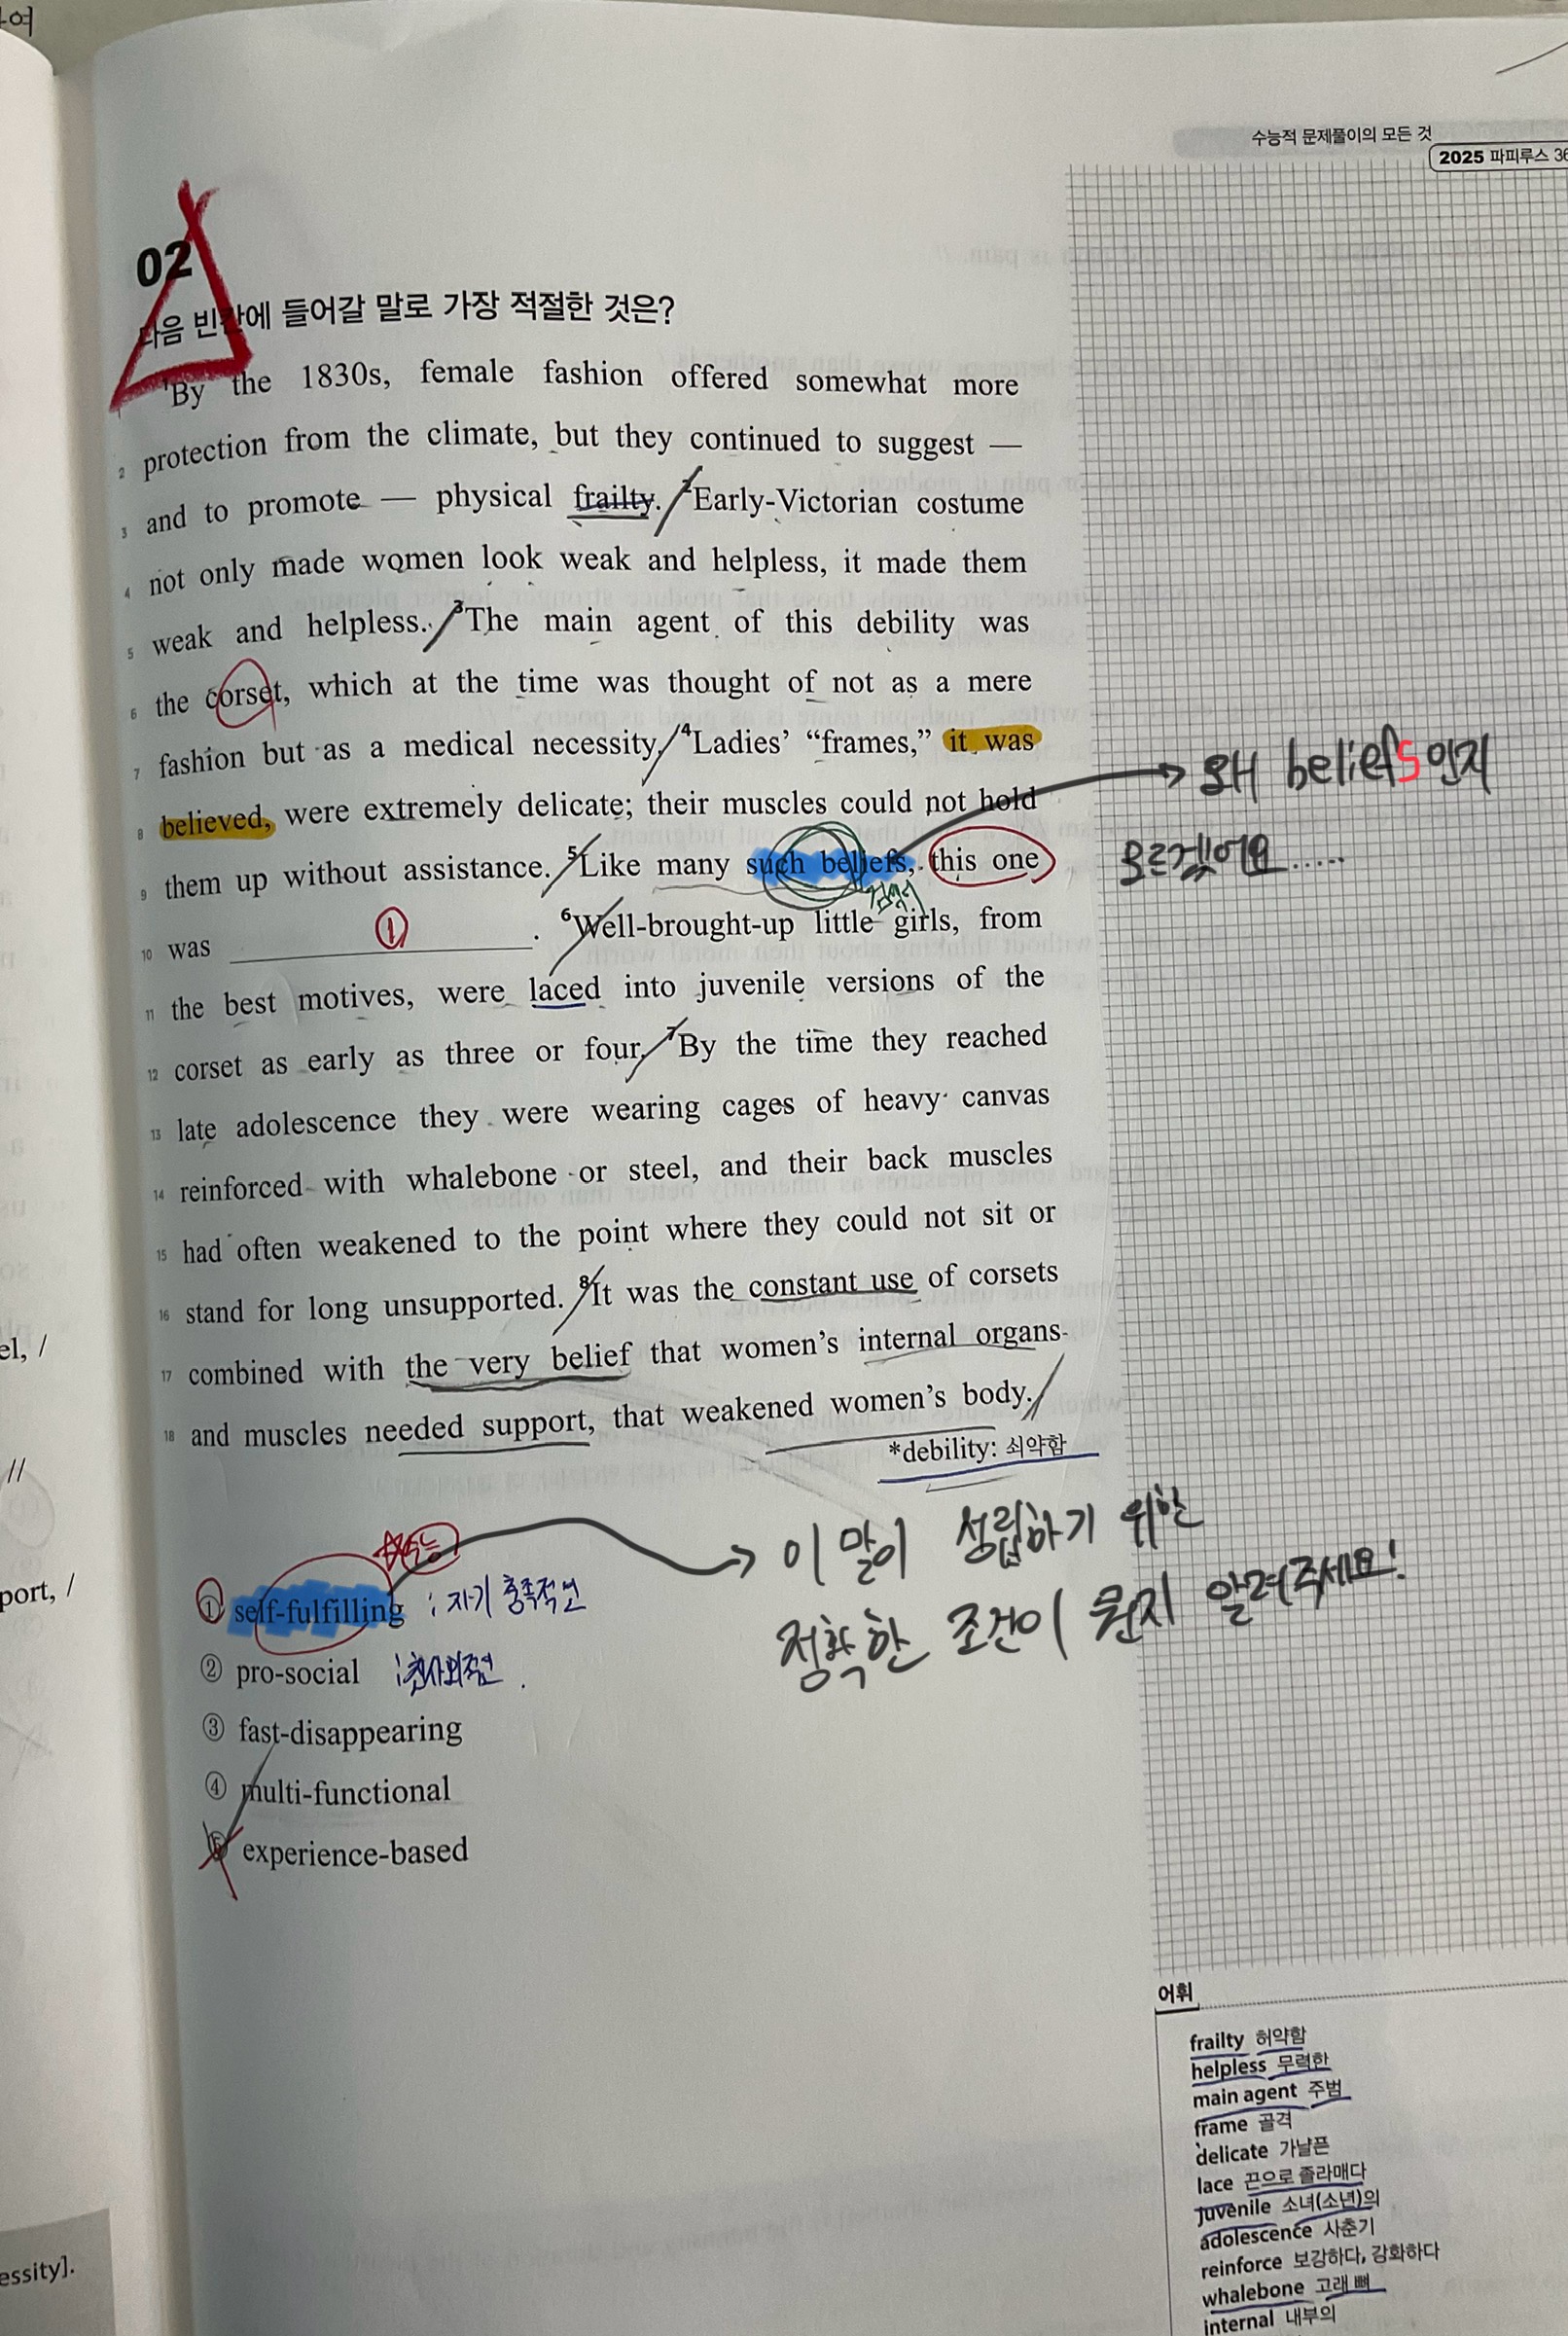 하여
수능적 문제풀이의 모든 것
2025 파피루스 36
02
다음 빈칸에 들어갈 말로 가장 적절한 것은?
1By the 1830s, female fashion offered somewhat more
2 protection from the climate, but they continued to suggest —
3 and to promote — physical frailty. 2Early-Victorian costume
4 not only made women look weak and helpless, it made them
5 weak and helpless. 3The main agent of this debility was
6 the corset, which at the time was thought of not as a mere
7 fashion but as a medical necessity. 4Ladies' “frames,” it was
8 believed, were extremely delicate; their muscles could not hold
9 them up without assistance. 5Like many such beliefs, this one
10 was ①.
6Well-brought-up little girls, from
11 the best motives, were laced into juvenile versions of the
12 corset as early as three or four. 7By the time they reached
13 late adolescence they were wearing cages of heavy canvas
14 reinforced with whalebone or steel, and their back muscles
15 had often weakened to the point where they could not sit or
16 stand for long unsupported. 8It was the constant use of corsets
17 combined with the very belief that women's internal organs
18 and muscles needed support, that weakened women's body.
*debility: 쇠약함
왜 beliefs인지
모르겠어요.....
① self-fulfilling : 자기 충족적인
② pro-social : 친사회적인
③ fast-disappearing
④ multi-functional
⑤ experience-based
이 말이 성립하기 위한
정확한 조건이 뭔지 알려주세요!
어휘
frailty 허약함
helpless 무력한
main agent 주범
frame 골격
delicate 가냘픈
lace 끈으로 졸라매다
juvenile 소녀(소년)의
adolescence 사춘기
reinforce 보강하다, 강화하다
whalebone 고래 뼈
internal 내부의
el, /
//
port, /
essity].